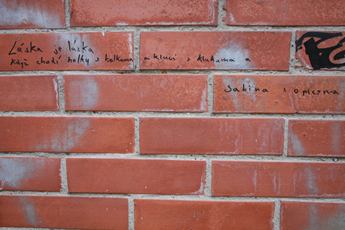 Láska je láska
když chodí holky s holkama a kluci s klukama a
Sabina